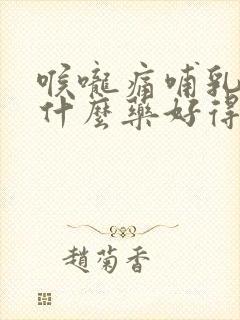 喉嚨痛哺乳
什麼藥好得
趙菊香